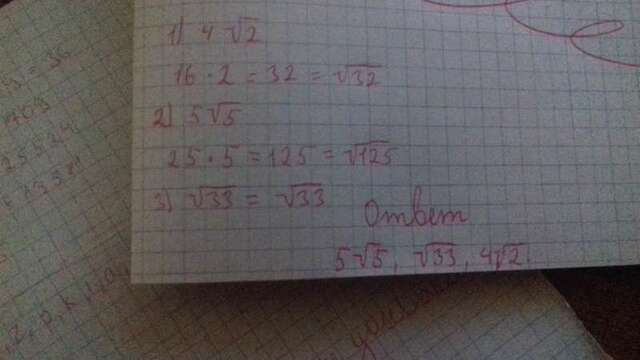 1) 4√2
16 · 2 = 32 = √32
2) 5√5
25 · 5 = 125 = √125
3) √33 = √33
Ответ
5√5, √33, 4√2.